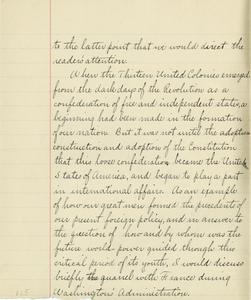 to the latter point that we would direct the
reader's attention.
When the Thirteen United Colonies emerged
from the dark days of the Revolution as a
confederation of free and independent states, a
beginning had been made in the formation
of our nation. But it was not until the
construction and adoption of the Constitution
that this loose confederation became the United
States of America, and began to play a part
in international affairs. As an example
of how our great men formed the precedents of
our present foreign policy, and in answer to
the question of how and by whom was the
future world-power guided through this
critical period of its youth, I would discuss
briefly the quarrel with France during
Washington's Administration.